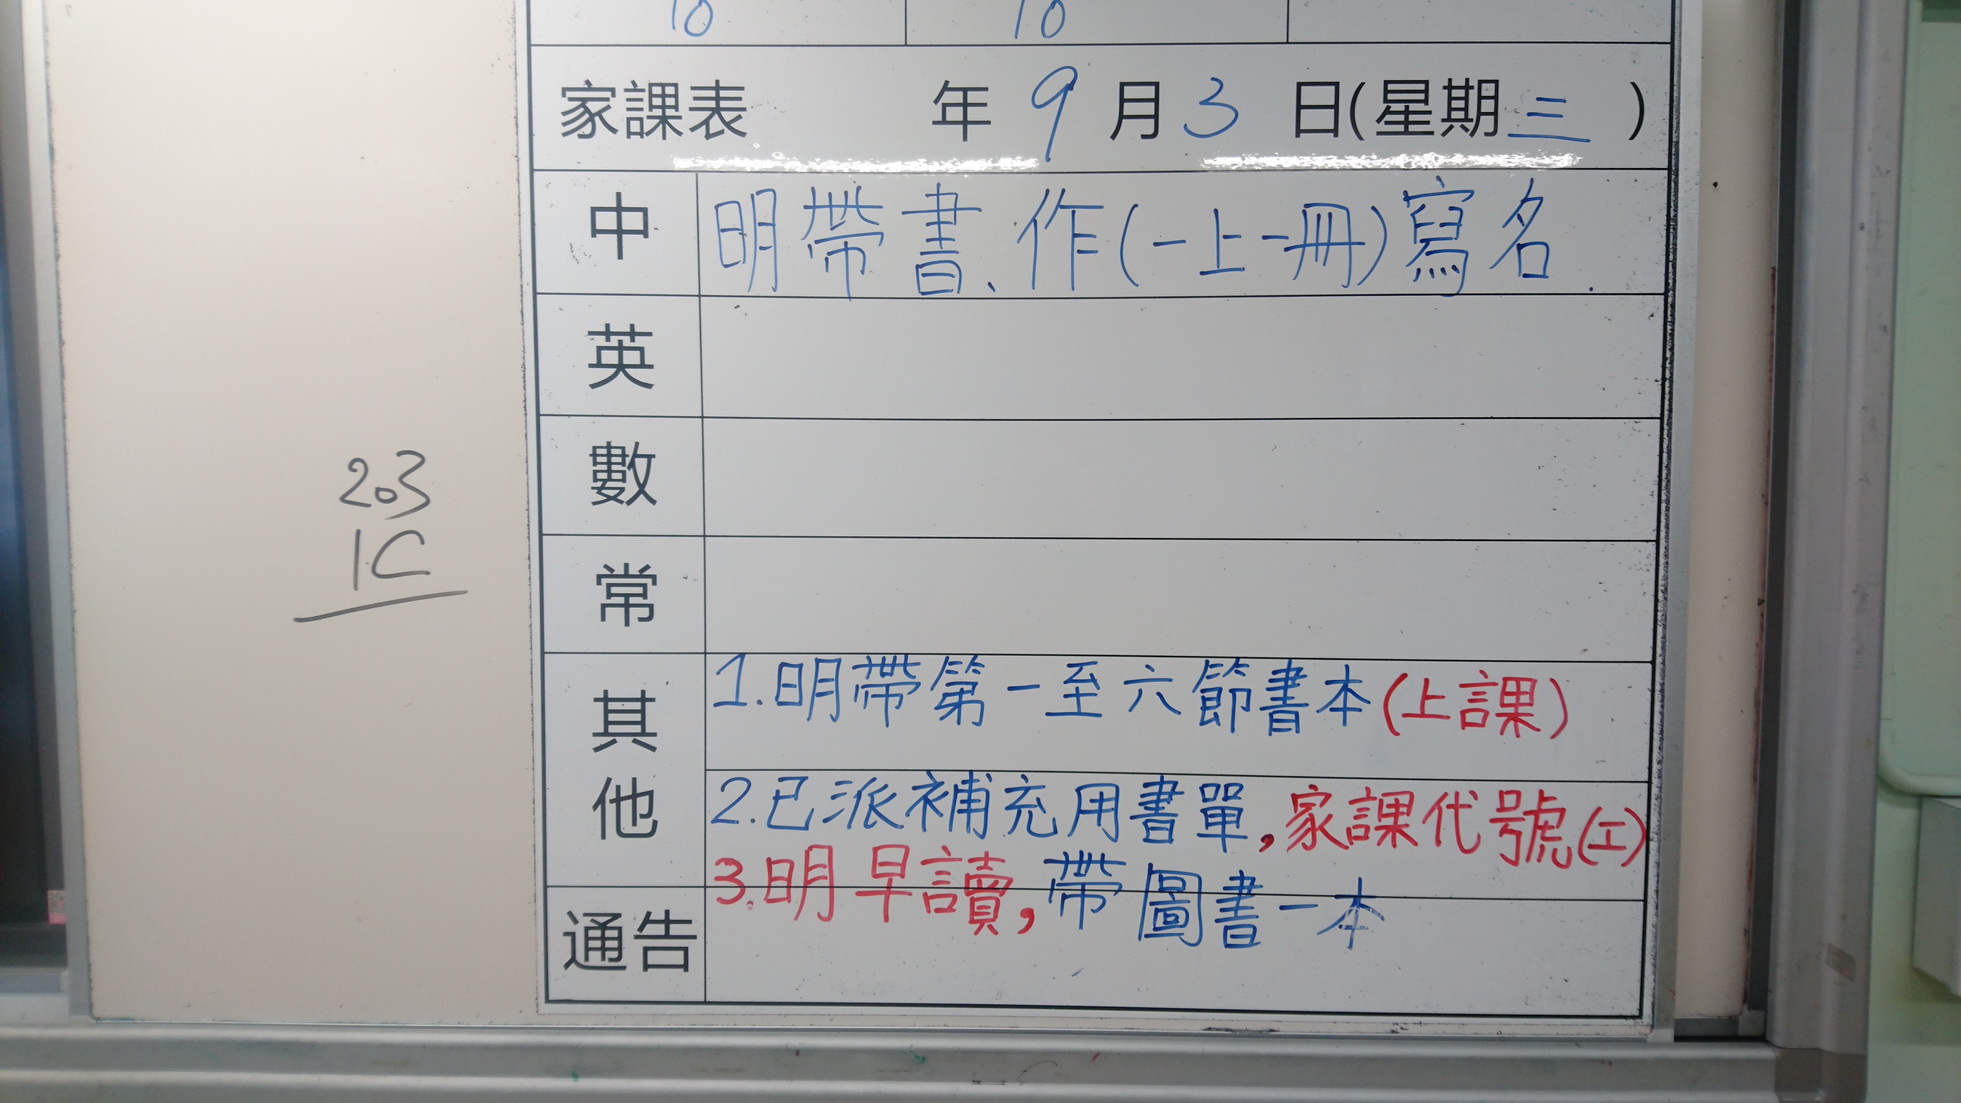 10 10
家課表 年 9 月 3 日(星期三)
中 明帶書、作(一上一冊)寫名.
英
數
常
其他 1.明帶第一至六節書本(上課)
2.已派補充用書單,家課代號(工)
3.明早讀,帶圖書一本
通告
203
1C